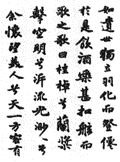 如遺世獨立羽化而登僊
於是飲酒樂甚扣舷而
歌之歌曰桂棹兮蘭槳
擊空明兮泝流光渺々兮
余懷望美人兮天一方客有